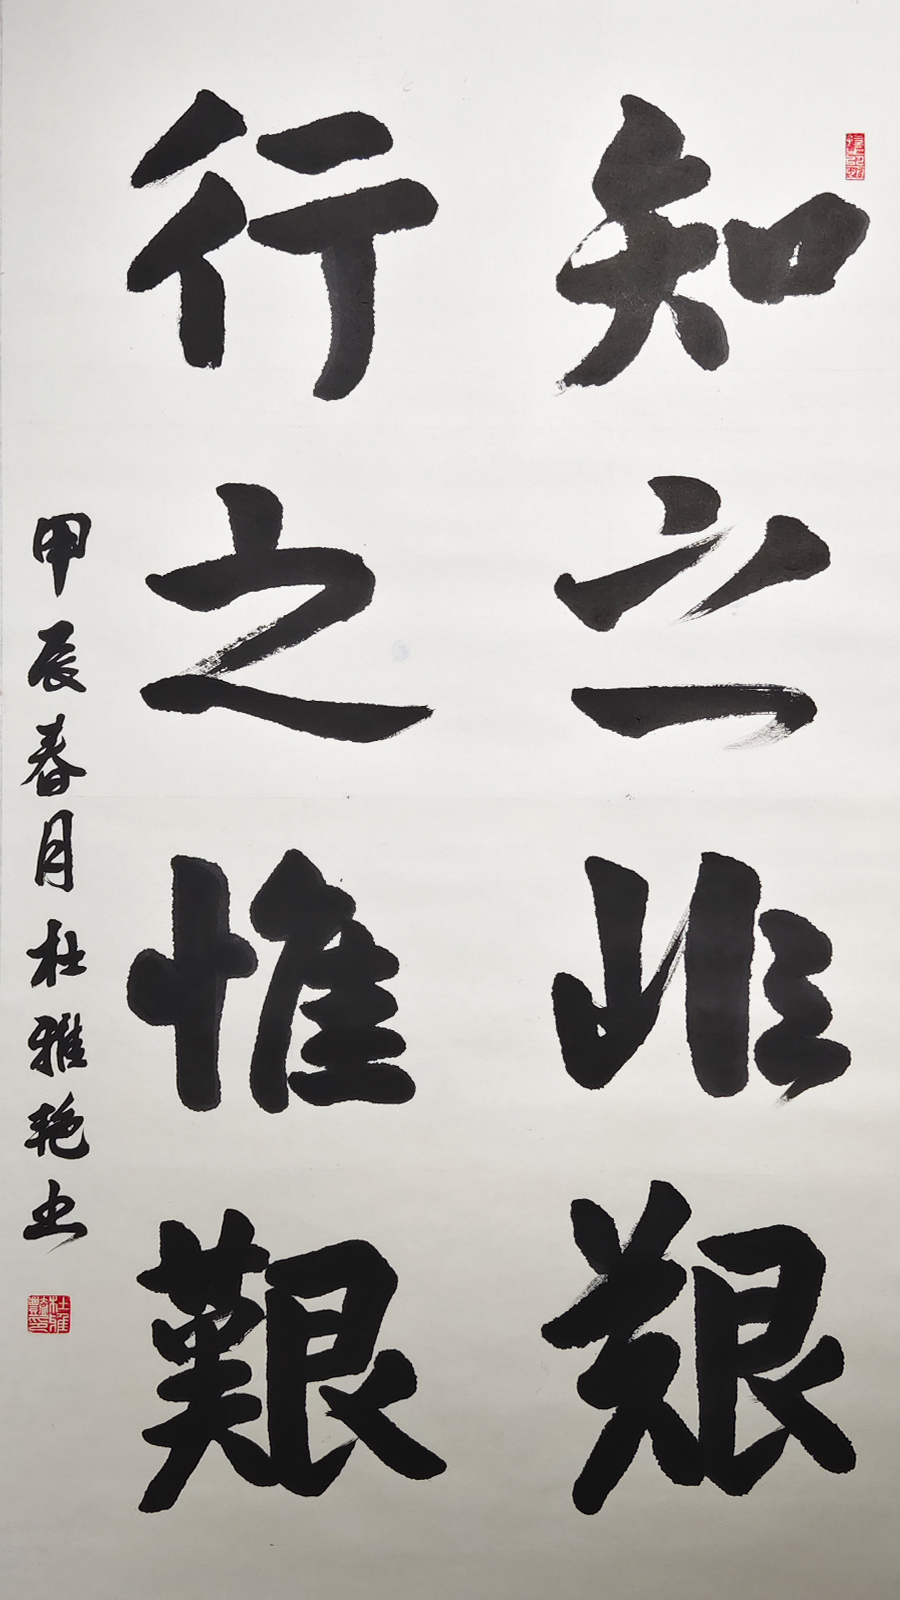 知之非艱
行之惟艱
甲辰春月杜雅艳书
杜雅艷印